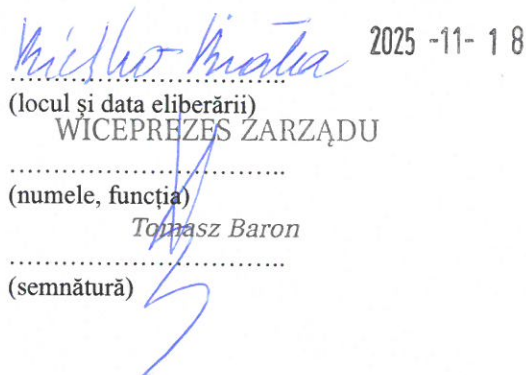 Bielsko-Biała 2025 -11- 18
..............................
(locul și data eliberării)
WICEPREZES ZARZĄDU
..............................
(numele, funcția)
Tomasz Baron
..............................
(semnătură)